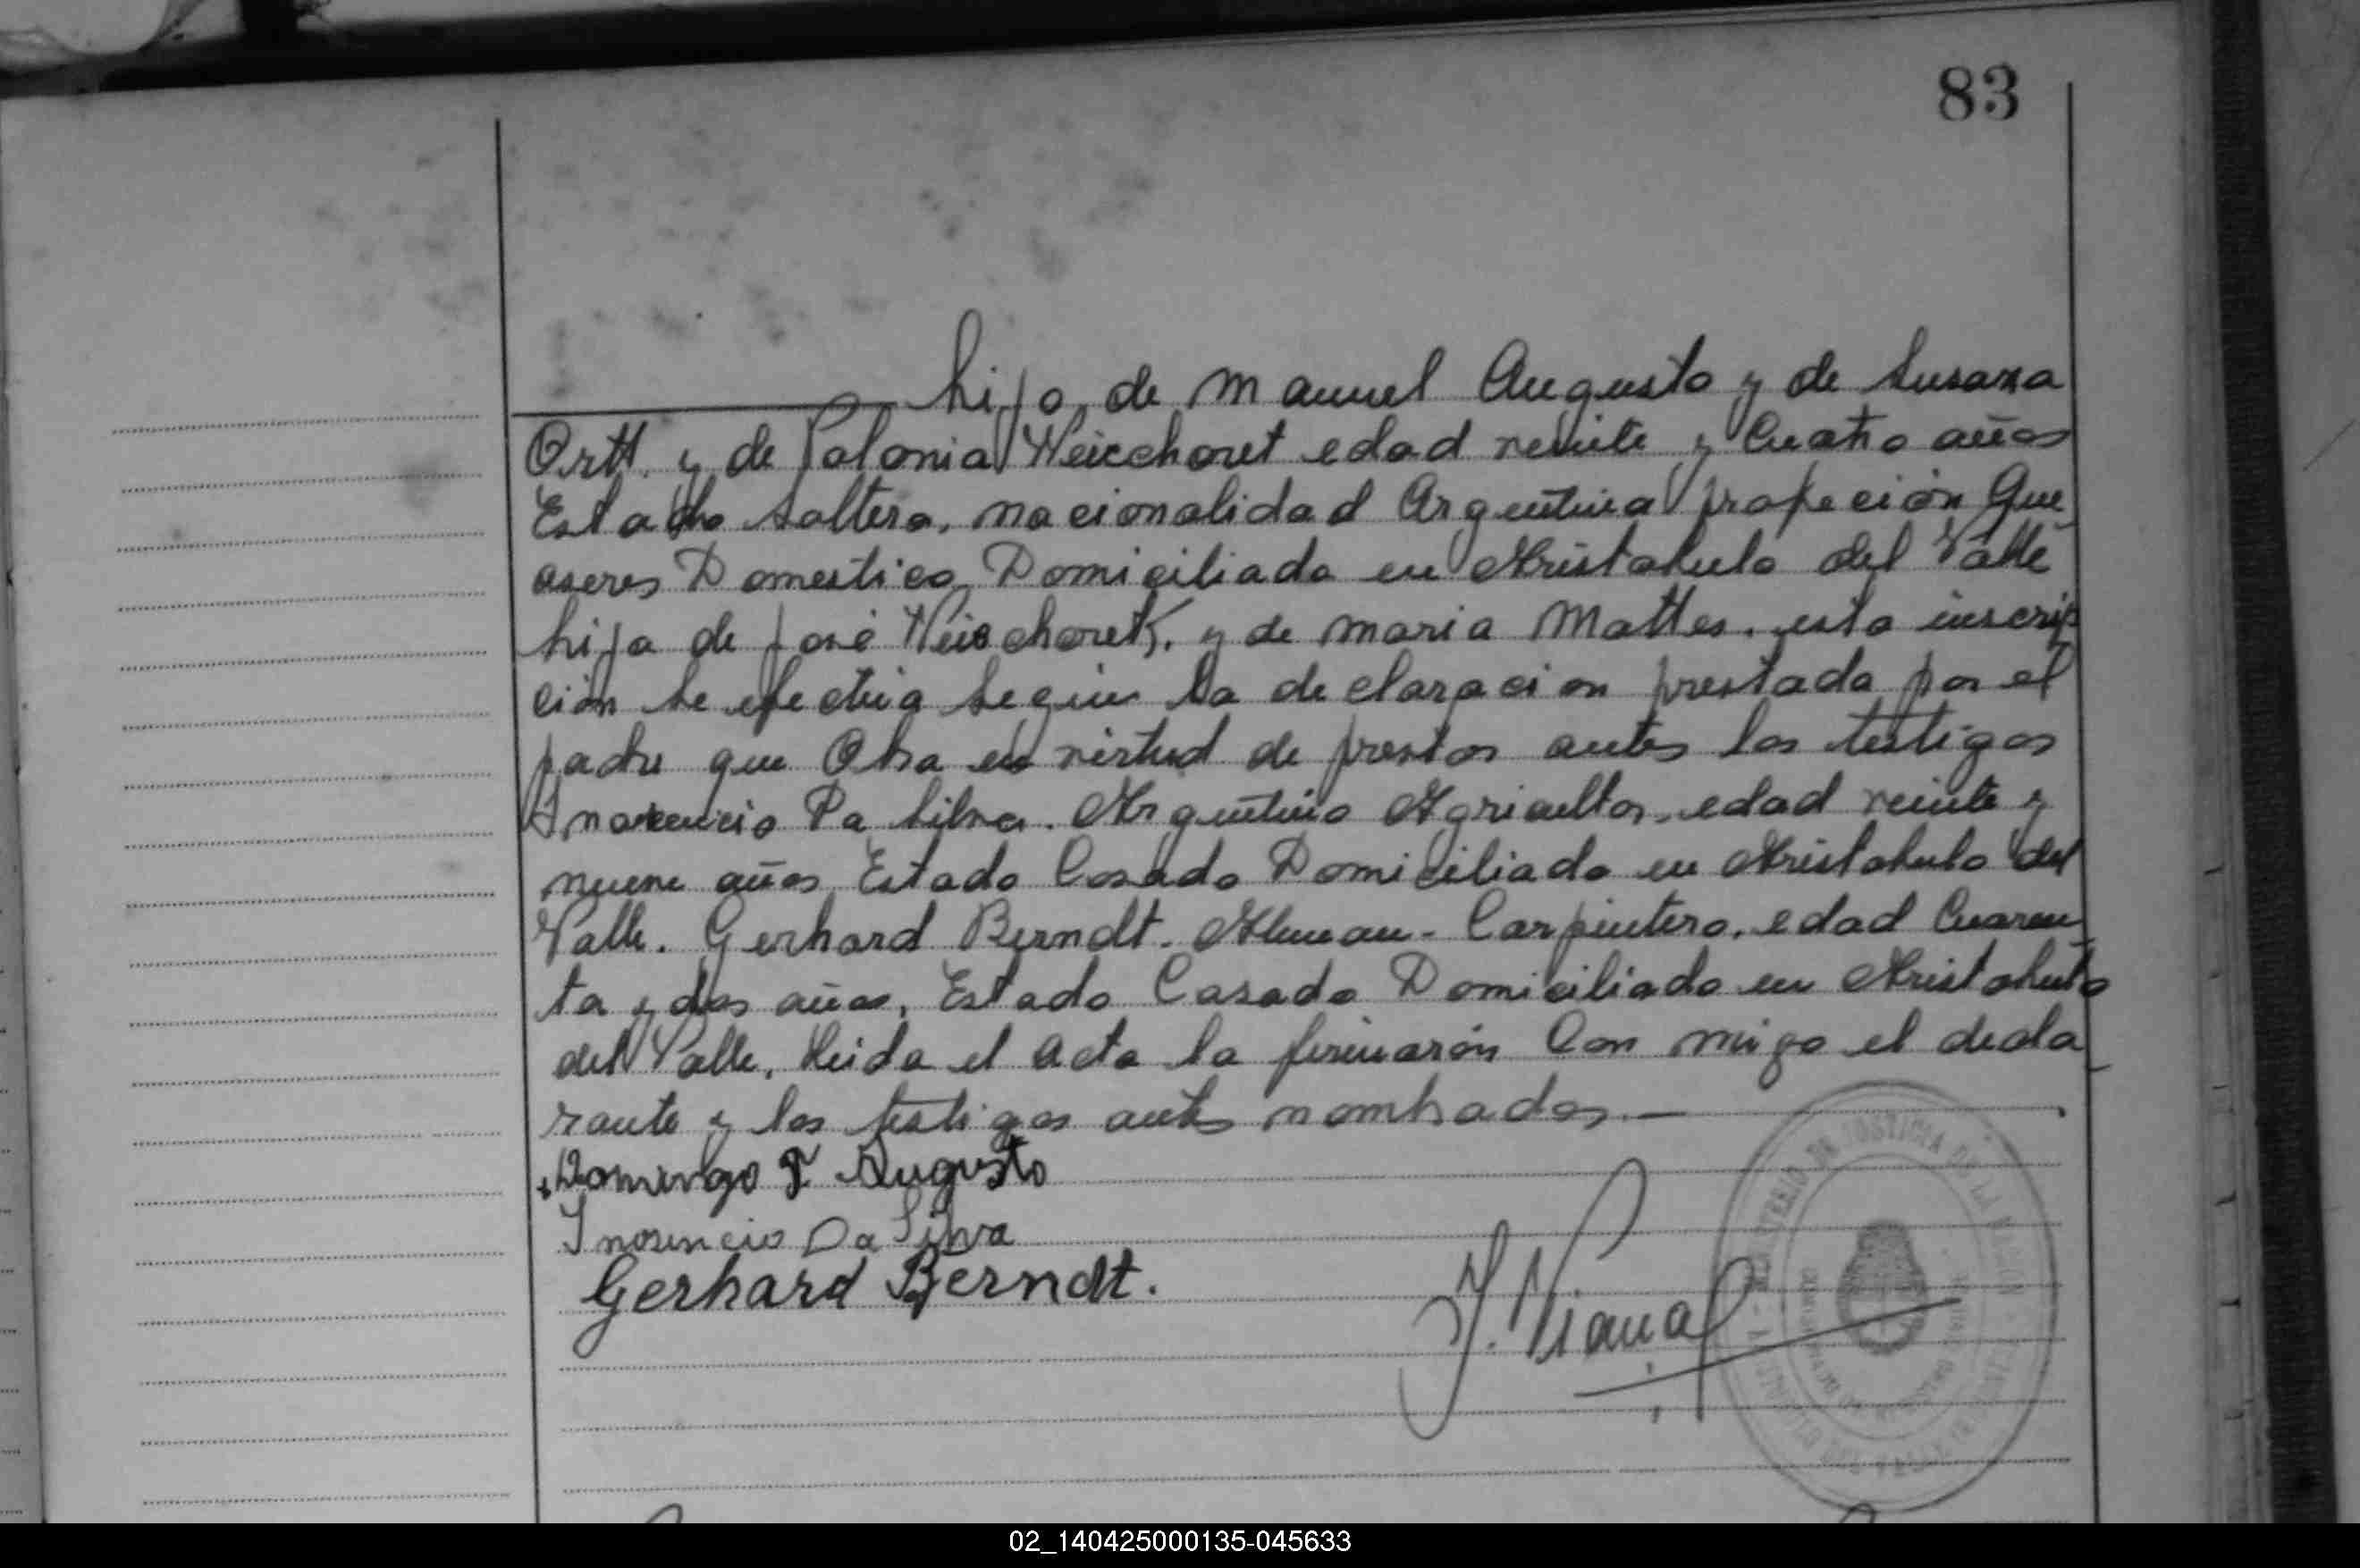 83
hijo, de Manuel Augusto y de Susana
Ortt. y de Polonia Weiechoret edad veinte y Cuatro años
Estado Soltera, nacionalidad Argentina profeción Que_
aseres Domestico, Domiciliada en Aristobulo del Valle
hija de José Weiechoret. y de Maria Mattes. esta inscrip
ción se efectua según la declaración prestada por el
padre que Obra en virtud de prestar antes los testigos
Inocencio Da Silva. Argentino Agricultor, edad veinte y
nueve años, Estado Casado Domiciliado en Aristobulo del
Valle. Gerhard Berndt. Aleman - Carpintero, edad Cuaren_
ta y dos años, Estado Casado Domiciliado en Aristobulo
del Valle, Leida el acta la firmarón Con migo el decla_
rante y los testigos antes nombrados.—
Domingo F. Augusto
Inosencio Da Silva
Gerhard Berndt.
J. Viana
MINISTERIO DE JUSTICIA DE LA NACION
02_140425000135-045633